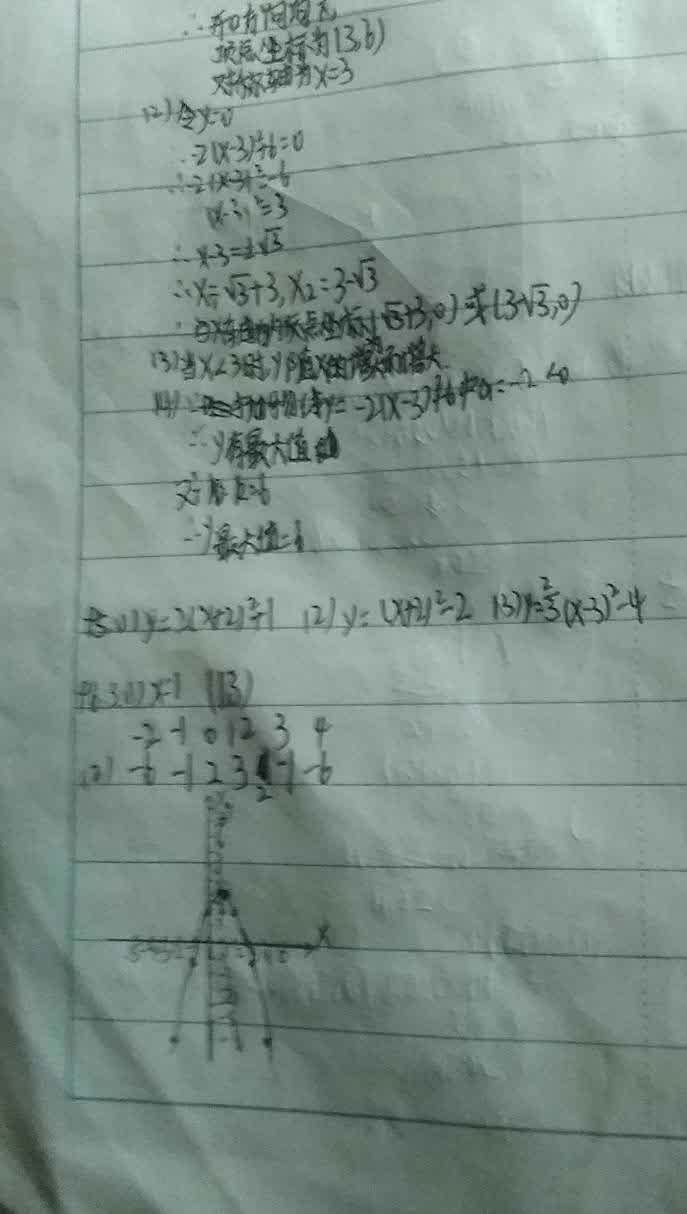 ∴开口方向向下
顶点坐标为(3,6)
对称轴为x=3
(2)令y=0
∴-2(x-3)²+6=0
∴-2(x-3)²=-6
(x-3)²=3
∴x-3=±√3
∴x₁=√3+3,x₂=3-√3
(√3+3,0)或(3-√3,0)
(3)当x<3时,y随x的增大而增大
(4) y=-2(x-3)²+6中a=-2<0
∴y有最大值
又∵k=6
∴y最大值=6
(1)y=2(x+2)²+1 (2)y=(x+2)²-2 (3)y=⅔(x-3)²-4
3.(1)x=1 (1,3)
-2 -1 0 1 2 3 4
(2) -6 -1 2 3 2 -1 -6
x